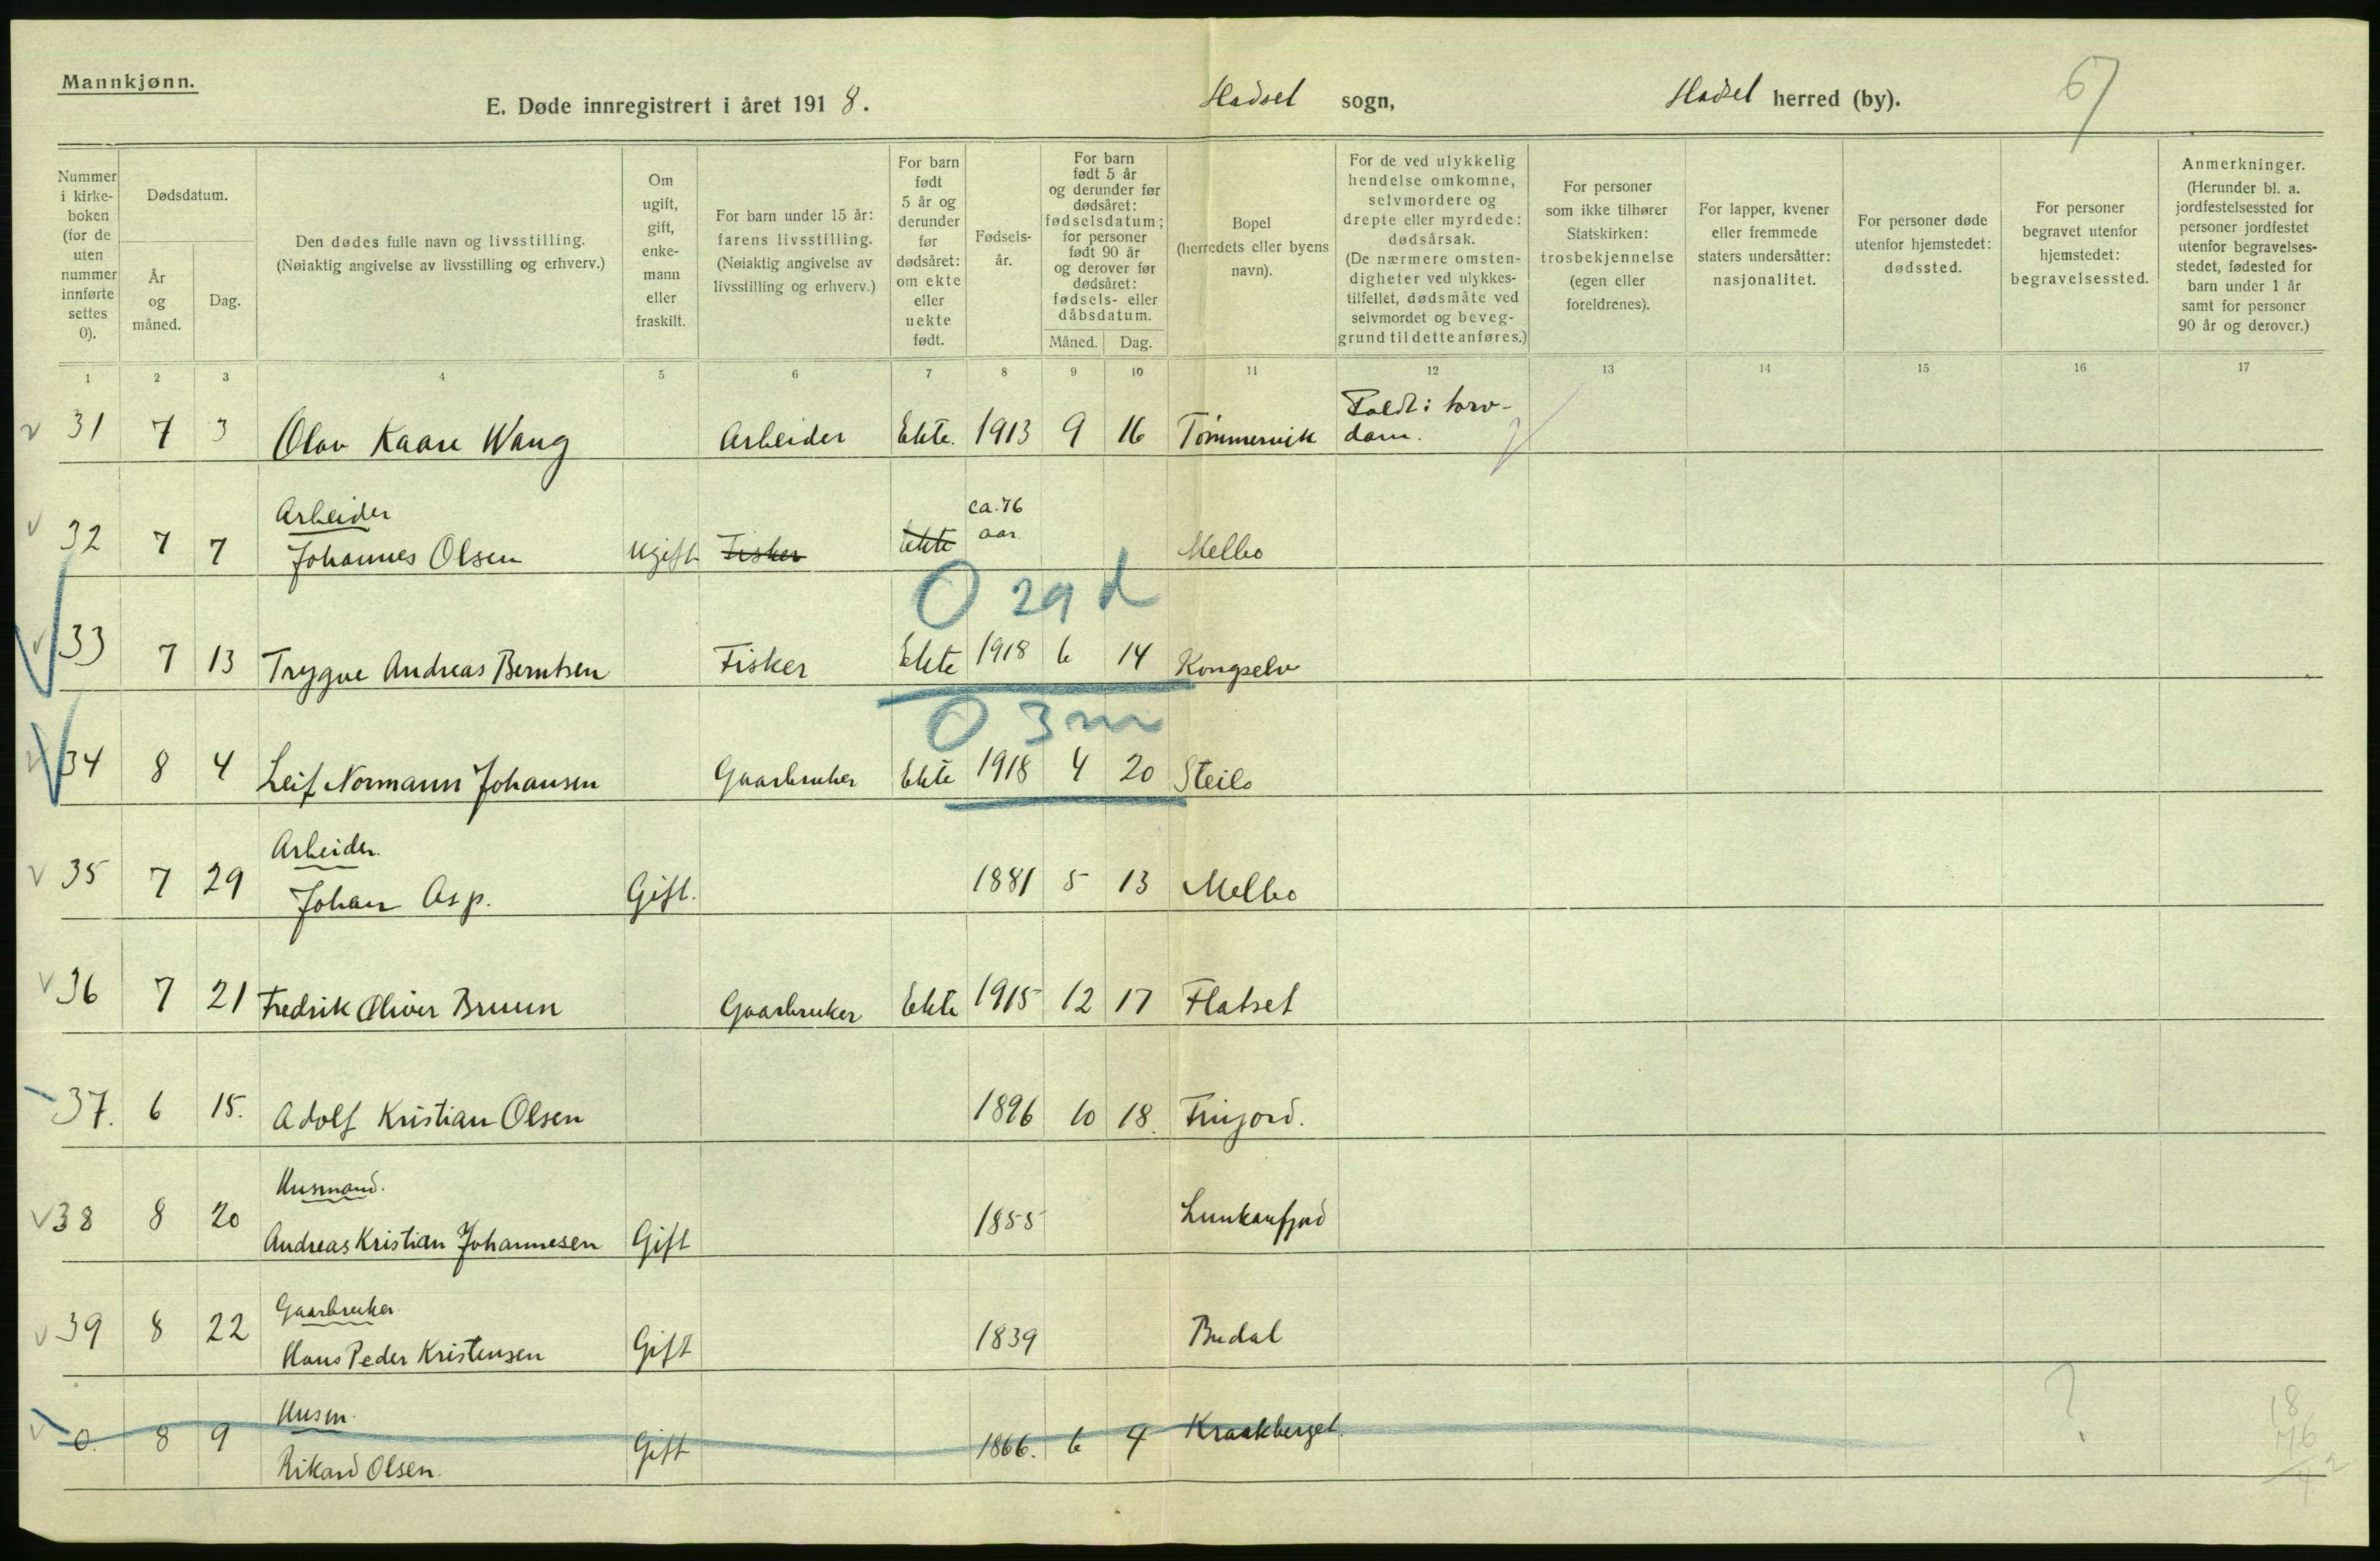 Mannkjønn.
E. Døde innregistrert i året 1918. Hadsel sogn, Hadsel herred (by). 67
Nummer i kirke- boken (for de uten nummer innførte settes 0).
Dødsdatum.
År og måned.
Dag.
Den dødes fulle navn og livsstilling.
(Nøiaktig angivelse av livsstilling og erhverv.)
Om ugift, gift, enke- mann eller fraskilt.
For barn under 15 år: farens livsstilling. (Nøiaktig angivelse av livsstilling og erhverv.)
For barn født 5 år og derunder før dødsåret: om ekte eller uekte født.
Fødsels- år.
For barn født 5 år og derunder før dødsåret: fødselsdatum; for personer født 90 år og derover før dødsåret: fødsels- eller dåbsdatum.
Måned. Dag.
Bopel (herredets eller byens navn).
For de ved ulykkelig hendelse omkomne, selvmordere og drepte eller myrdede: dødsårsak. (De nærmere omsten- digheter ved ulykkes- tilfellet, dødsmåte ved selvmordet og beveg- grund til dette anføres.)
For personer som ikke tilhører Statskirken: trosbekjennelse (egen eller foreldrenes).
For lapper, kvener eller fremmede staters undersåtter: nasjonalitet.
For personer døde utenfor hjemstedet: dødssted.
For personer begravet utenfor hjemstedet: begravelsessted.
Anmerkninger. (Herunder bl. a. jordfestelsessted for personer jordfestet utenfor begravelses- stedet, fødested for barn under 1 år samt for personer 90 år og derover.)
1 2 3 4 5 6 7 8 9 10 11 12 13 14 15 16 17
Faldt i torv-
31 7 3 Olav Kaare Wang Arbeider Ekte. 1913 9 16 Tømmervik dam.
Arbeider ca. 76
32 7 7 Johannes Olsen Ugift Fisker Ekte aar. Melbo
0 29 d
33 7 13 Trygve Andreas Berntsen Fisker Ekte 1918 6 14 Kongselv
0 3 m
34 8 4 Leif Normann Johansen Gaarbruker Ekte 1918 4 20 Steilo
Arbeider.
35 7 29 Johan Asp. Gift. 1881 5 13 Melbo
36 7 21 Fredrik Oliver Bruun Gaarbruker Ekte 1915 12 17 Flatset
37. 6 15. Adolf Kristian Olsen 1896 10 18. Finjord.
Husmand.
38 8 20 Andreas Kristian Johannesen Gift 1855 Lunkanfjord
Gaarbruker.
39 8 22 Hans Peder Kristensen Gift 1839 Budal
Husm. ? 18
0. 8 9 Rikard Olsen. Gift 1866. 6 4 Kraakberget.